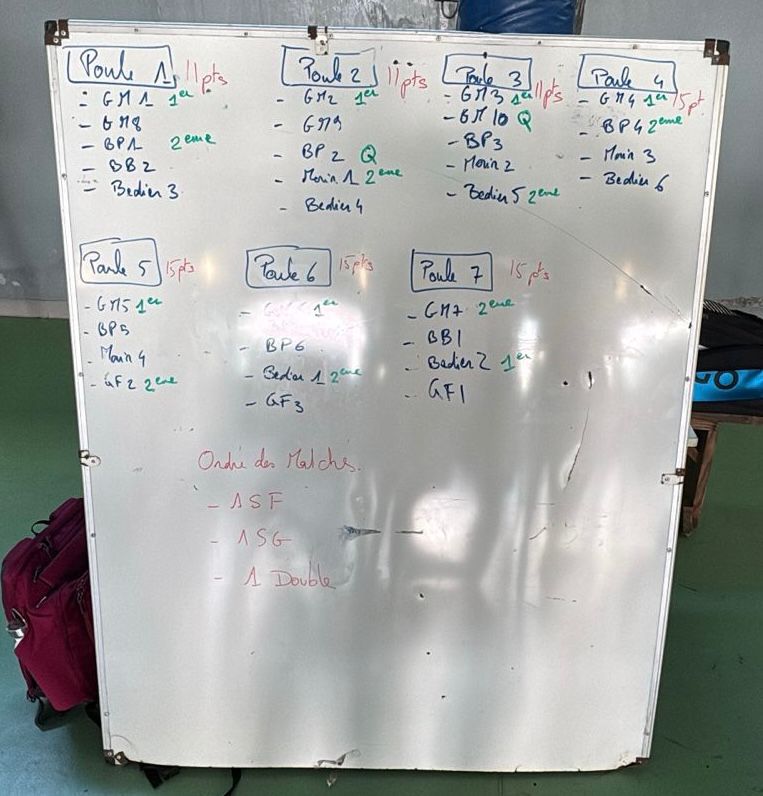 Poule 1 11pts
- GM1 1er
- GM8
- BP1 2eme
- BB2
- Bedier 3
Poule 2 11pts
- GM2 1er
- GM9
- BP2 Q
- Morin 1 2eme
- Bedier 4
Poule 3 11pts
- GM3 1er
- GM10 Q
- BP3
- Morin 2
- Bedier 5 2eme
Poule 4 15pt
- GM4 1er
- BP4 2eme
- Morin 3
- Bedier 6
Poule 5 15pts
- GM5 1er
- BP5
- Morin 4
- GF2 2eme
Poule 6 15pts
- 1er
- BP6
- Bedier 1 2eme
- GF3
Poule 7 15pts
- GM7 2eme
- BB1
- Bedier 2 1er
- GF1
Ordre des Matchs.
- 1SF
- 1SG
- 1 Double